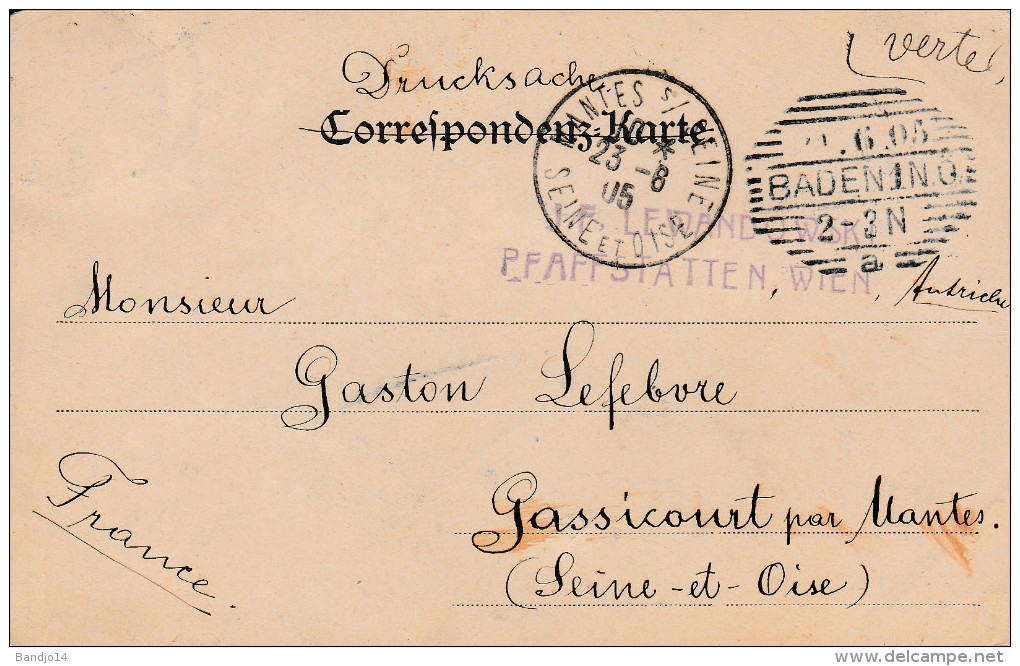 (verte)
Drucksache
Correspondenz-Karte
MANTES S/ SEINE
23 -6
05
SEINE ET OISE
.6.05
BADEN 1 N.Ö.
2-3N
a
LEWANDOWSKY
PFAFFSTATTEN, WIEN, Autriche
Monsieur
Gaston Lefebvre
France.
Gassicourt par Mantes.
(Seine-et-Oise)
Bandjo14
www.delcampe.net